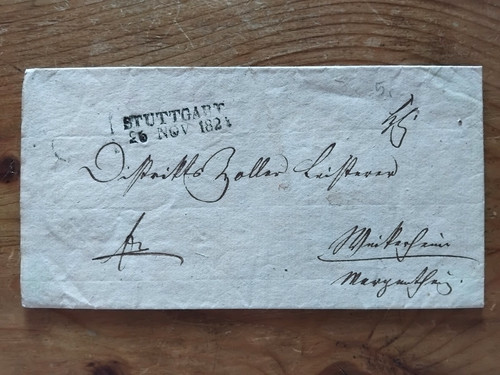 STUTTGART
26 NOV 1824
5.
Distrikts Zoller Leisterer
Weikersheim
Mergentheim.